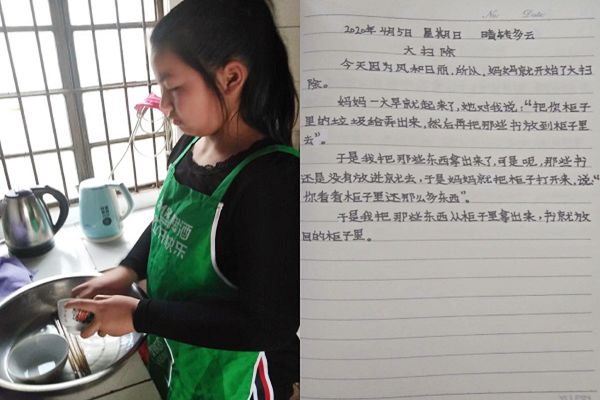 快乐
No. Date:
2020年4月5日 星期日 晴转多云
大扫除
今天因为风和日丽,所以,妈妈就开始了大扫
除。
妈妈一大早就起来了,她对我说,“把你柜子
里的垃圾给弄出来,然后再把那些书放到柜子里
去”。
于是我把那些东西拿出来了,可是呢,那些书
还是没有放进就去,于是妈妈就把柜子打开来,说:“
你看看柜子里还那么多东西”。
于是我把那些东西从柜子里拿出来,书就放
回的柜子里。